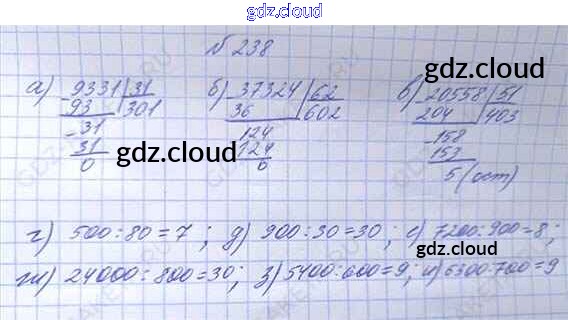 gdz.cloud
№ 238
а) 9331 | 31 б) 37324 | 62 в) 20558 | 51
93 301 36 602 204 403
- 31 124 - 158
31 gdz.cloud 124 153
0 0 5 (ост)
г) 500 : 80 = 7 ; д) 900 : 30 = 30 ; е) 7200 : 900 = 8 ;
ж) 24000 : 800 = 30 ; з) 5400 : 600 = 9 ; и) 6300 : 700 = 9
gdz.cloud
gdz.cloud